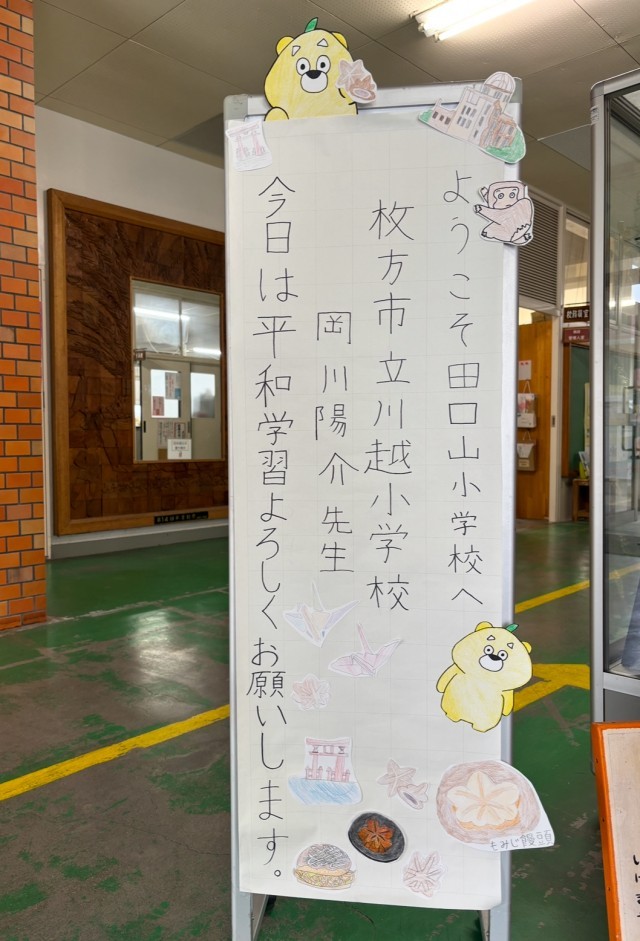 ようこそ田口山小学校へ
枚方市立川越小学校
岡川陽介先生
今日は平和学習よろしくお願いします。
もみじ饅頭